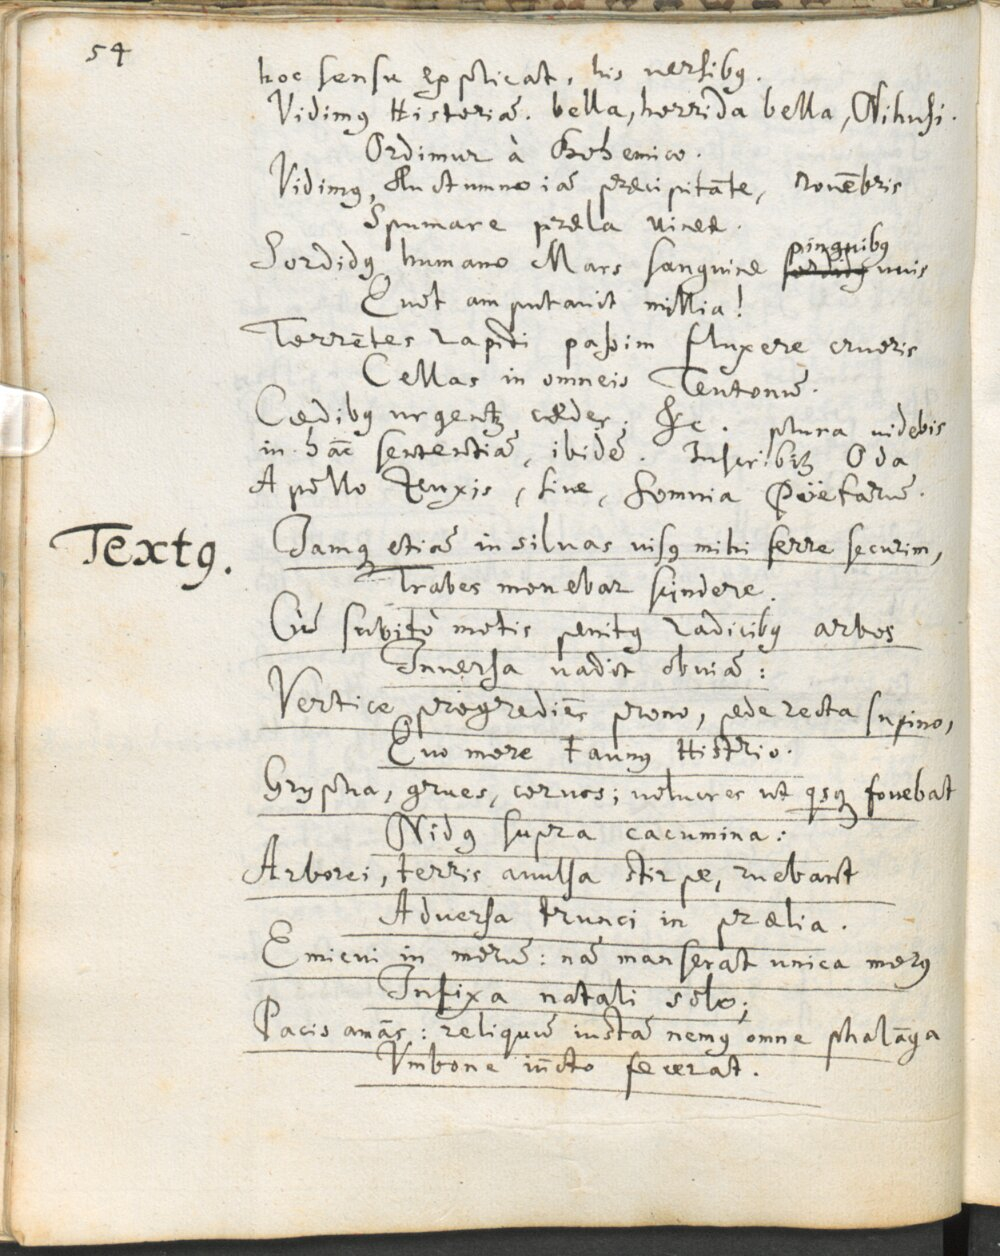 54
hoc sensu explicat, his versibꝯ.
Vidimꝯ Historiā. bella, horrida bella, Nihusi.
Ordimur à Bohemico.
Vidimꝯ, Auctumno iā præcipitāte, novēbris
Spumare præla vineæ.
Sordidꝯ humano Mars sanguine pinguibꝯ uuis
Quot amputavit millia!
Torrētes rapidi paßim fluxere cruoris
Cellas in omneis Teutonū.
Cædibꝯ urgentꝫ cædes. &c. plura videbis
in hāc sententiā, ibidē. Inscribitꝫ Oda
Apollo Zeuxis, sive, somnia Poëtarū.
Textꝯ.
Jamqꝫ etiā in silvas visꝯ mihi ferre securim,
Trabes monebar scindere.
Cū subitò motis penitꝯ radicibꝯ arbos
Inversa vadit obviā:
Vertice progrediēs prono, pede recta supino,
Quo more faunꝯ Histrio.
Grypha, grues, corvos; volucres ut qsqꝫ fovebat
Nidꝯ supra cacumina:
Arborei, terris avulsa stirpe, ruebant
Adversa trunci in prælia.
Emicui in morū: nā manserat unica morꝯ
Infixa natali solo;
Pacis amās: reliquū iustā nemꝯ omne phalāga
Vmbone iūcto fecerat.